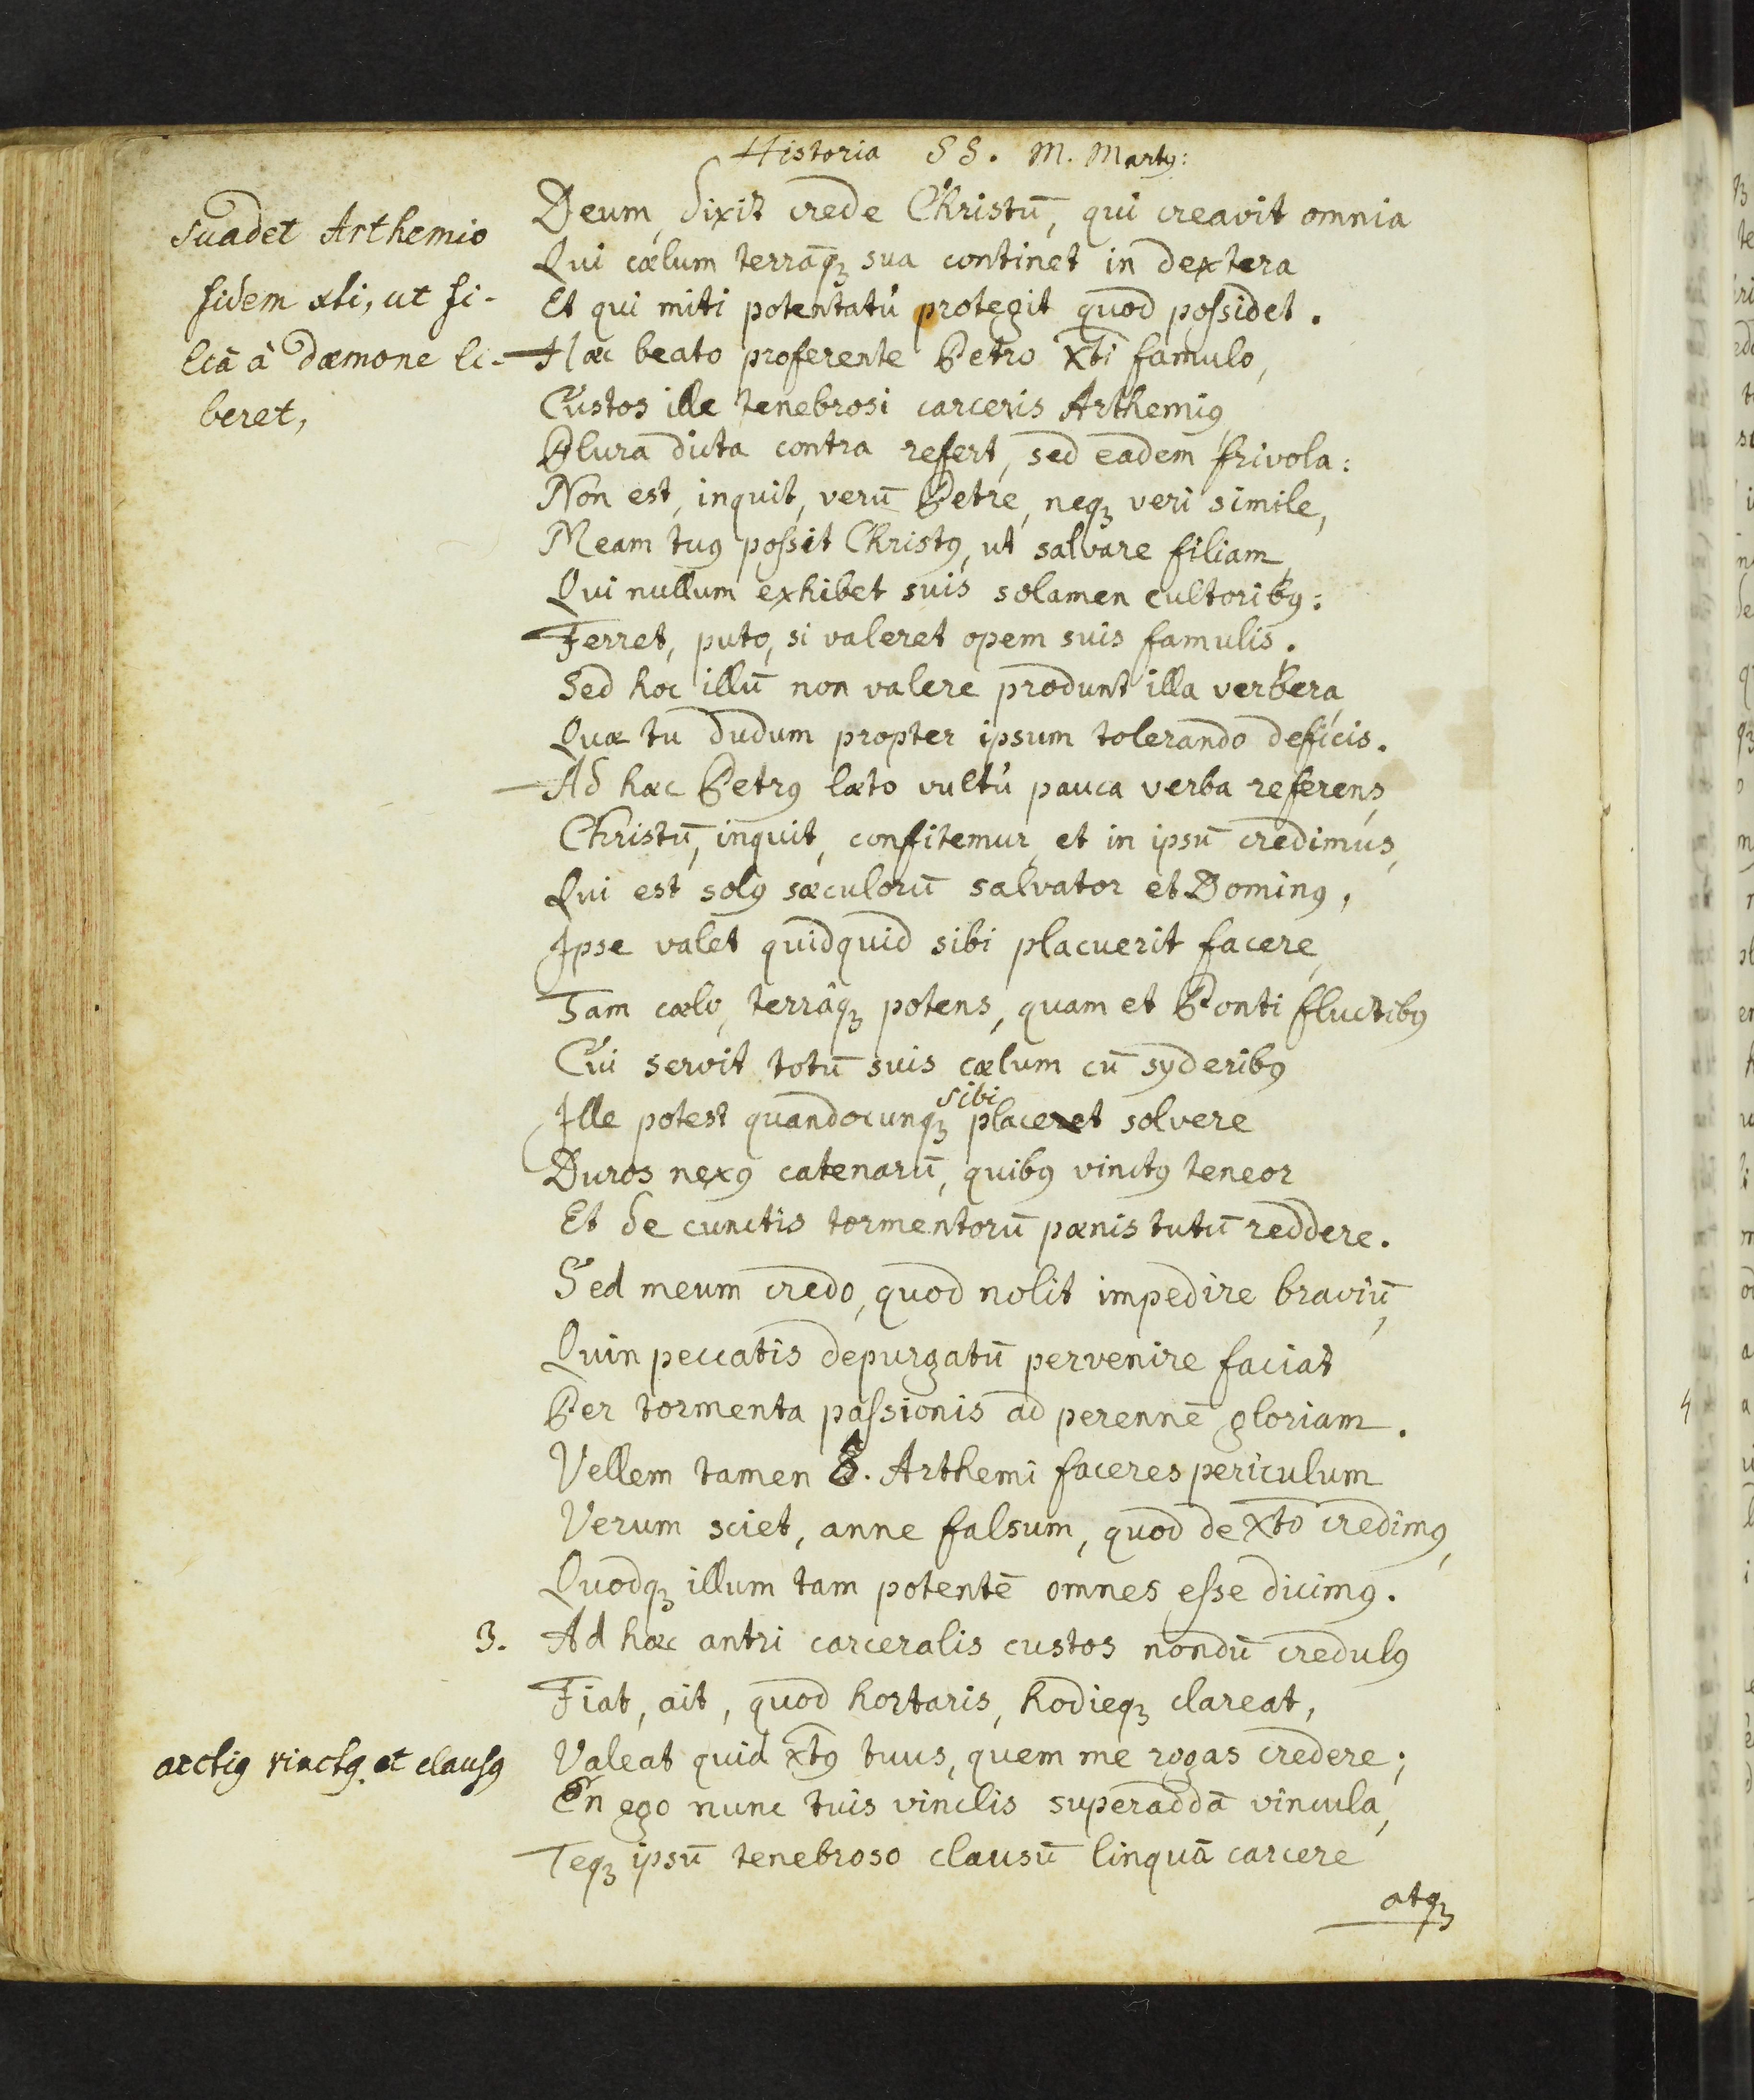 Historia SS. M. Marty:
Deum, dixit crede Christū, qui creavit omnia
Qui cælum terrāqꝫ sua continet in dextera
Et qui miti potentatû protegit quod possidet.
Hæc beato proferente Petro Xti famulo,
Custos ille tenebrosi carceris Arthemiꝯ,
Plura dicta contra refert, sed eadem frivola:
Non est, inquit, verū Petre, neqꝫ veri simile,
Meam tuꝯ possit Christꝯ, ut salvare filiam,
Qui nullum exhibet suis solamen cultoribꝯ:
Ferret, puto, si valeret opem suis famulis.
Sed hoc illū non valere produnt illa verbera,
Quæ tu dudum propter ipsum tolerando deficis.
Ad hæc Petrꝯ læto vultû pauca verba referens,
Christū, inquit, confitemur, et in ipsū credimus,
Qui est solꝯ sæculorū salvator et Dominꝯ,
Ipse valet quidquid sibi placuerit facere,
Tam cælo, terrâqꝫ potens, quam et Ponti fluctibꝯ
Cui servit totū suis cælum cū syderibꝯ
Ille potest quandocunqꝫ sibi placeret solvere
Duros nexꝯ catenarū, quibꝯ vinctꝯ teneor
Et de cunctis tormentorū pænis tutū reddere.
Sed meum credo, quod nolit impedire braviū,
Quin peccatis depurgatū pervenire faciat
Per tormenta passionis ad perennē gloriam.
Vellem tamen ô. Arthemi faceres periculum
Verum sciet, anne falsum, quod de Xto credimꝯ,
Quodqꝫ illum tam potentē omnes esse dicimꝯ.
3. Ad hæc antri carceralis custos nondū credulꝯ
Fiat, ait, quod hortaris, hodieqꝫ clareat,
Valeat quid xtꝯ tuus, quem me rogas credere;
En ego nunc tuis vinclis superaddā vincula,
Teqꝫ ipsū tenebroso clausū linquā carcere
atqꝫ
suadet Arthemio
fidem xti, ut fi-
liā à dæmone li-
beret,
arctiꝯ vinctꝯ et clausꝯ